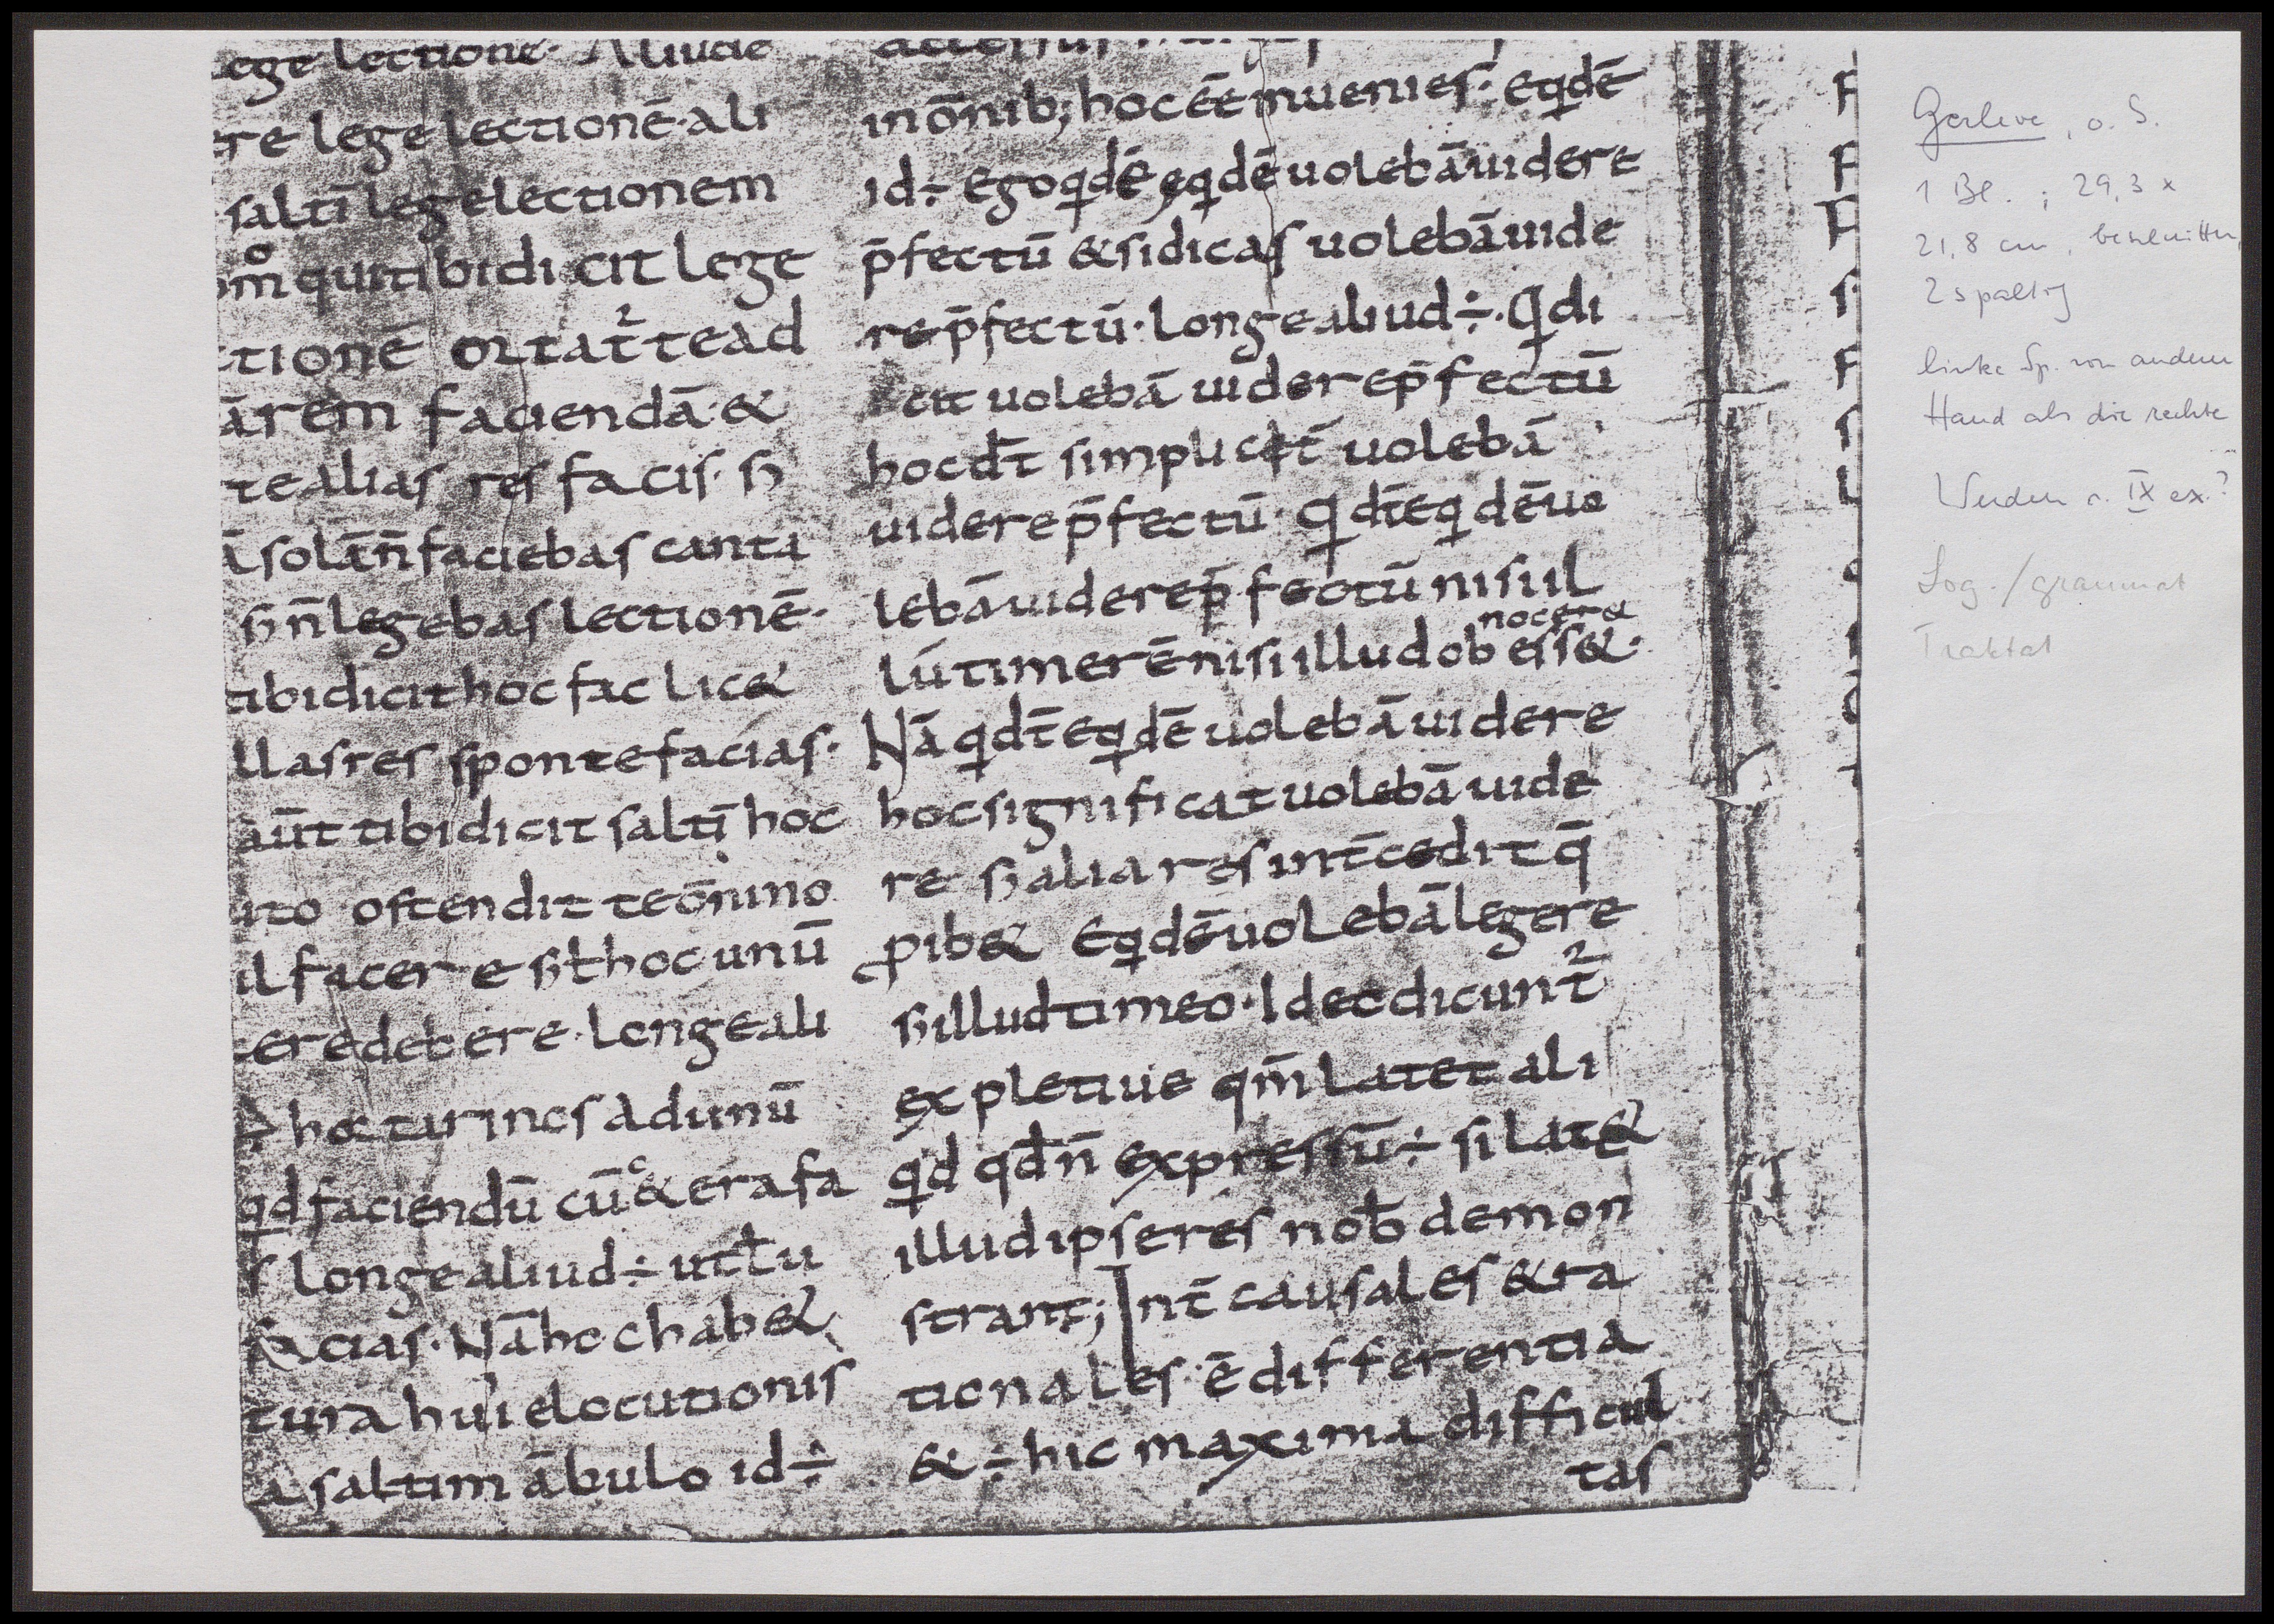 ege lectionē· Aliude
ere lege lectionē· ali
saltī lege lectionem
om̄ qui tibi dicit lege
ctionē ortat̄ te ad
ā rem faciendā· &
te alias res facis· ꞩ
ā solā n̄ faciebas canta
ꞩ n̄ legebas lectionē·
tibi dicit hoc fac lic&
llas res sponte facias·
aūt tibi dicit saltī hoc
ito ostendit te ōnino
il facere ꞩ t̄ hoc unū
cere debere· longe ali
÷ hor tunc ad unū
qd faciendū cū & cera fa
s longe aliud ÷ ut t̄ u
facias· Nā hoc hab&
tura hui elocutionis
a saltim ābulo id ÷
in ōnib; hoc ēē inuenies· eq̄dē
id ÷ ego q̄dē eq̄dē uolebā uidere
p̄fectū & si dicas uolebā uide
re p̄fectū· longe aliud ÷· Q di
cit uolebā uidere p̄fectū
hoc dt̄ simplicit̄ uolebā
uidere p̄fectū· q dt̄ eq̄dē uo
lebā uidere p̄fectū nisi il
nocer&
lū timerē nisi illud obess&·
Nā q dt̄ eq̄dē uolebā uidere
hoc significat uolebā uide
re ꞩ alia res int̄cedit q̄
ꝓib& Eq̄dē uolebā legere
ꞩ illud timeo· Ideo dicunt̄
expletiue qm̄ latet ali
qd qd n̄ expressū ÷ si lat&
illud ipse res nob̄ demon
strant; Int̄ causales & ra
tionales· ē differentia
& ÷ hic maxima difficul
tas
Gerleve, o. S.
1 Bl. ; 29,3 x
21,8 cm, beschnitten,
2 spaltig
linke Sp. von anderer
Hand als die rechte
Werden s. IX ex.?
Log./grammat
Traktat